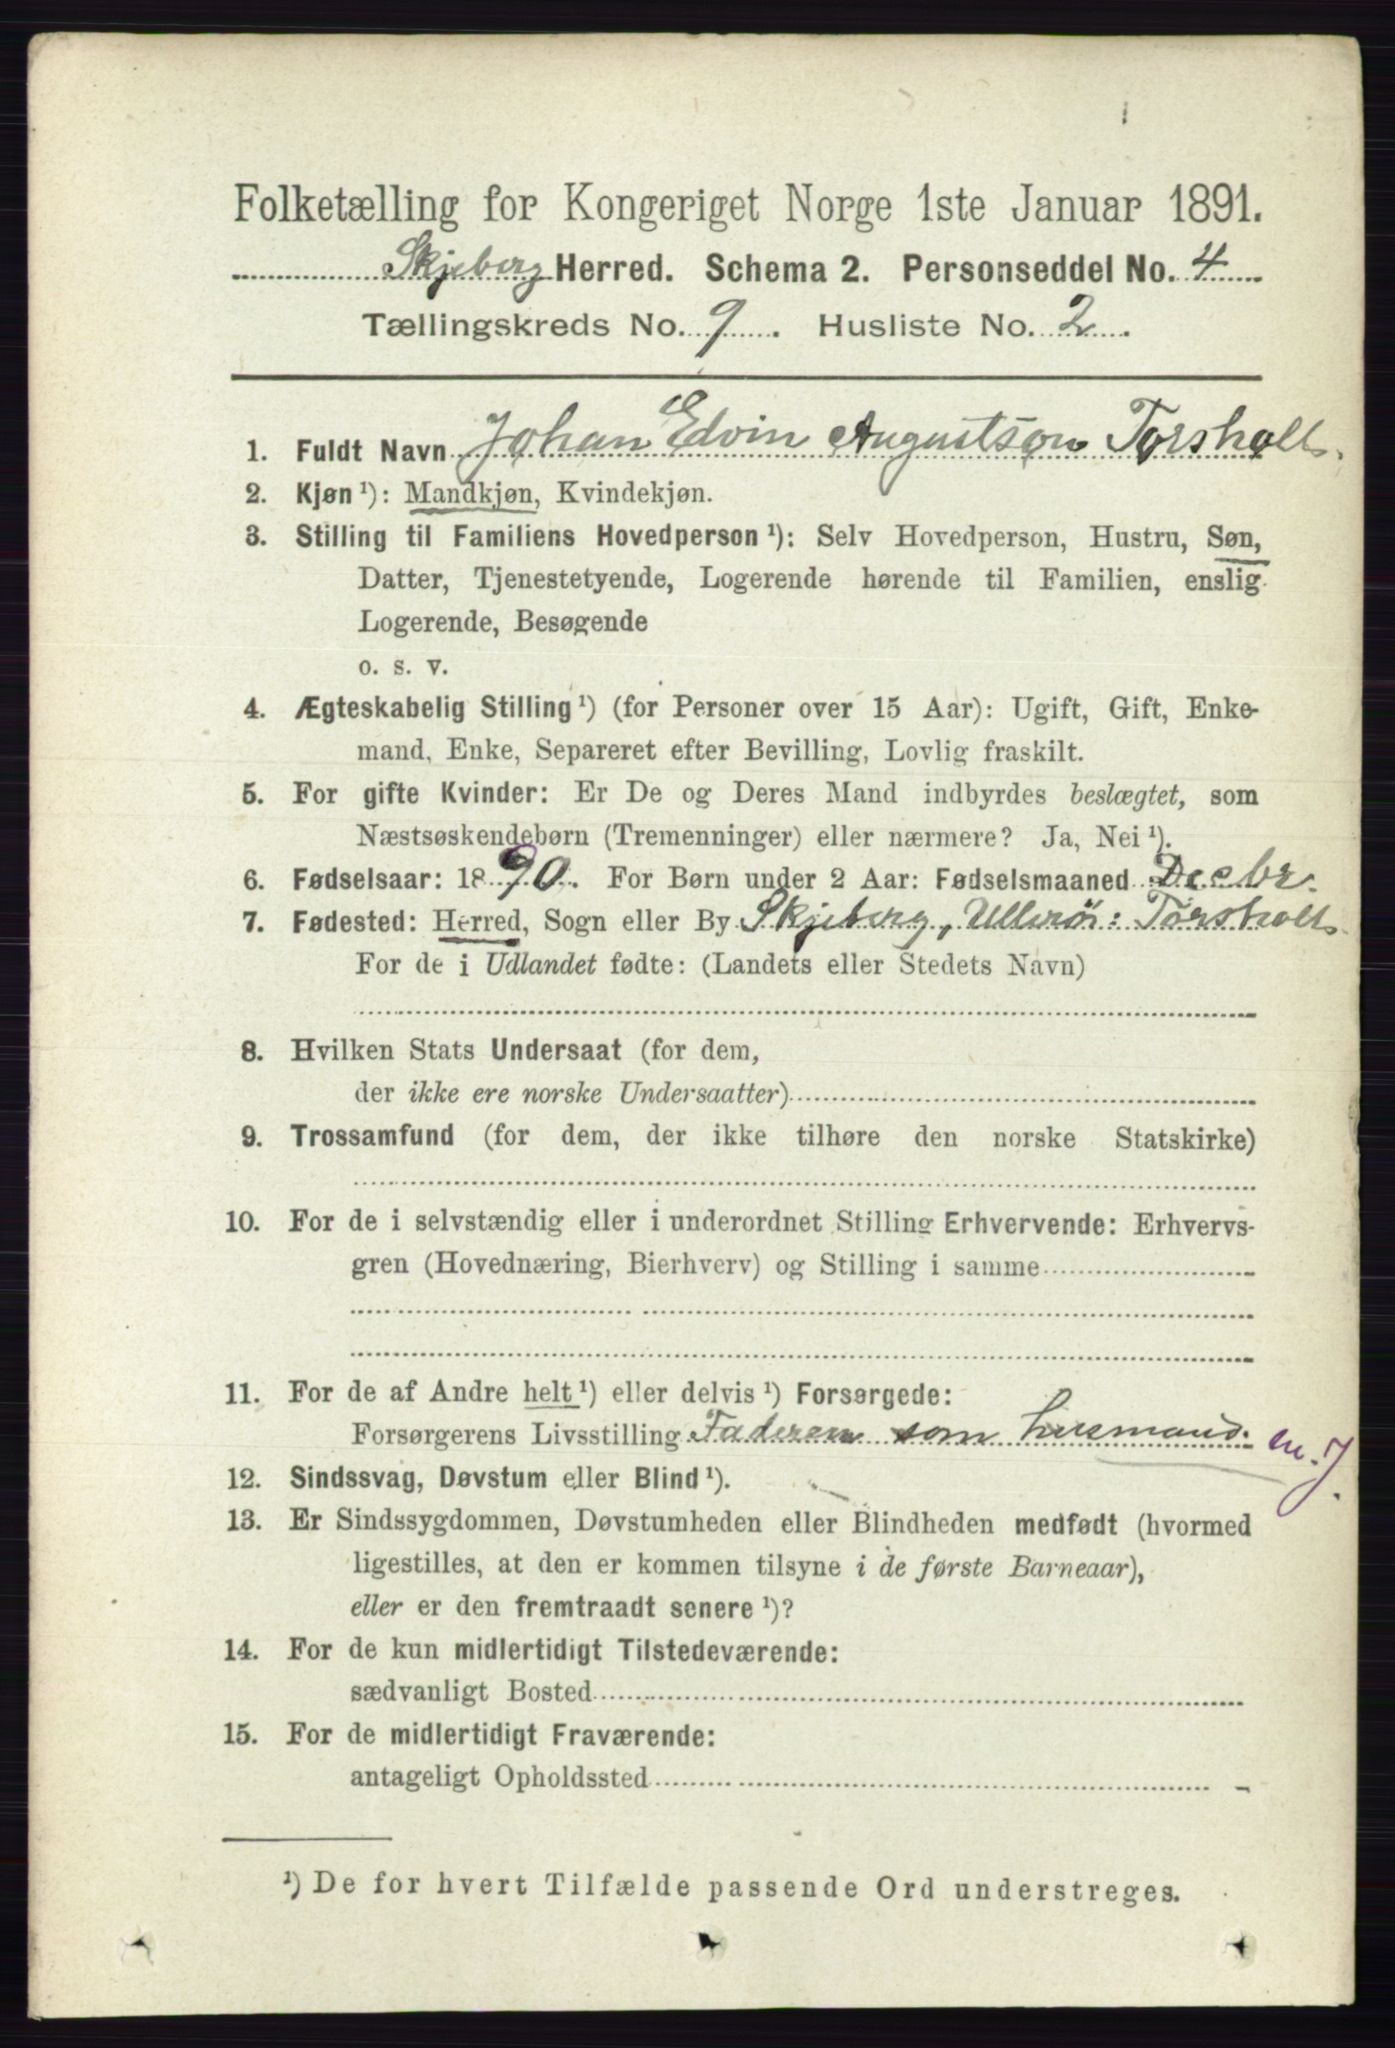 Folketælling for Kongeriget Norge 1ste Januar 1891.
Skjeberg Herred. Schema 2. Personseddel No. 4
Tællingskreds No. 9. Husliste No. 2.
1. Fuldt Navn Johan Edvin Augustson Torsholt.
2. Kjøn ¹): Mandkjøn, Kvindekjøn.
3. Stilling til Familiens Hovedperson ¹): Selv Hovedperson, Hustru, Søn,
Datter, Tjenestetyende, Logerende hørende til Familien, enslig
Logerende, Besøgende
o. s. v.
4. Ægteskabelig Stilling ¹) (for Personer over 15 Aar): Ugift, Gift, Enke-
mand, Enke, Separeret efter Bevilling, Lovlig fraskilt.
5. For gifte Kvinder: Er De og Deres Mand indbyrdes beslægtet, som
Næstsøskendebørn (Tremenninger) eller nærmere? Ja, Nei ¹).
6. Fødselsaar: 1890. For Børn under 2 Aar: Fødselsmaaned Decbr.
7. Fødested: Herred, Sogn eller By Skjeberg, Ullerö: Torsholt
For de i Udlandet fødte: (Landets eller Stedets Navn)
8. Hvilken Stats Undersaat (for dem,
der ikke ere norske Undersaatter)
9. Trossamfund (for dem, der ikke tilhøre den norske Statskirke)
10. For de i selvstændig eller i underordnet Stilling Erhvervende: Erhvervs-
gren (Hovednæring, Bierhverv) og Stilling i samme
11. For de af Andre helt ¹) eller delvis ¹) Forsørgede:
Forsørgerens Livsstilling Faderen som husmand. m. J.
12. Sindssvag, Døvstum eller Blind ¹).
13. Er Sindssygdommen, Døvstumheden eller Blindheden medfødt (hvormed
ligestilles, at den er kommen tilsyne i de første Barneaar),
eller er den fremtraadt senere ¹)?
14. For de kun midlertidigt Tilstedeværende:
sædvanligt Bosted
15. For de midlertidigt Fraværende:
antageligt Opholdssted
¹) De for hvert Tilfælde passende Ord understreges.